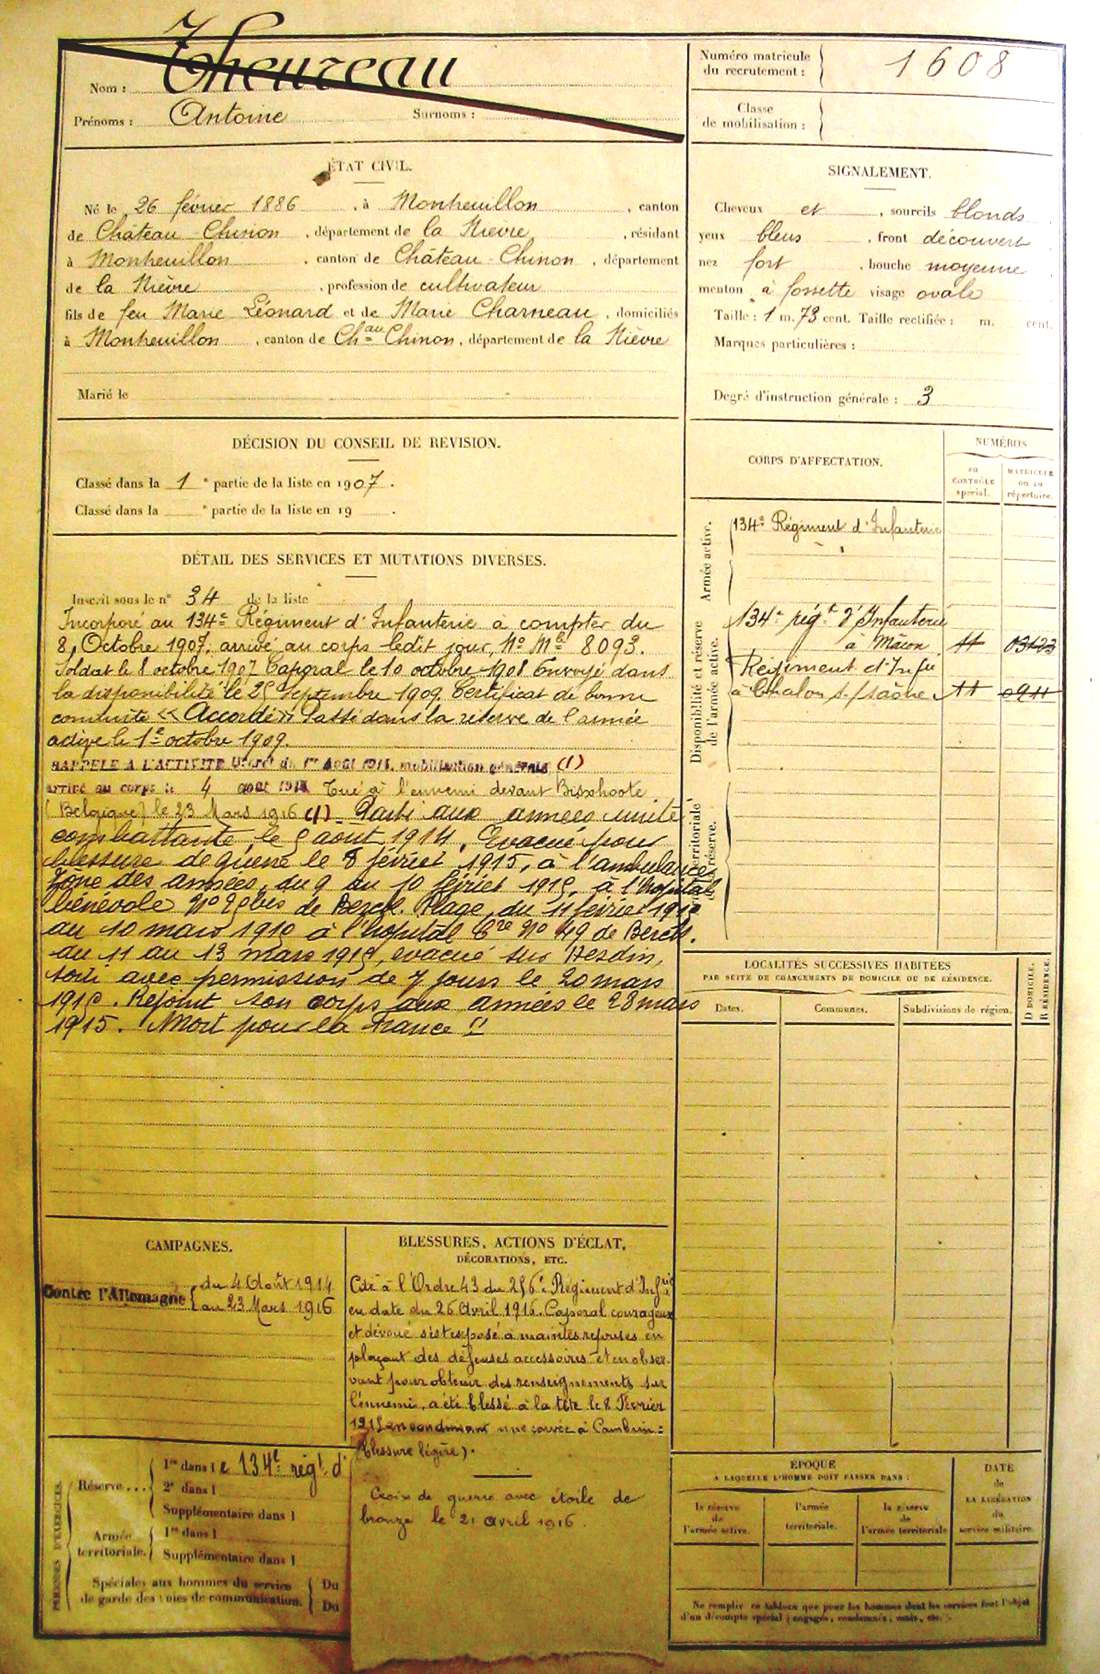 Nom : Theureau
Prénoms : Antoine Surnoms :
Numéro matricule
du recrutement : 1608
Classe
de mobilisation :
ÉTAT CIVIL.
Né le 26 février 1886, à Montreuillon, canton
de Château-Chinon, département de la Nièvre, résidant
à Montreuillon, canton de Château-Chinon, département
de la Nièvre, profession de cultivateur
fils de feu Marie Léonard et de Marie Charneau, domiciliés
à Montreuillon, canton de Chau Chinon, département de la Nièvre
Marié le
SIGNALEMENT.
Cheveux et, sourcils blonds
yeux bleus, front découvert
nez fort, bouche moyenne
menton à fossette visage ovale
Taille : 1 m. 73 cent. Taille rectifiée : m. cent.
Marques particulières :
Degré d'instruction générale : 3
DÉCISION DU CONSEIL DE REVISION.
Classé dans la 1e partie de la liste en 1907.
Classé dans la e partie de la liste en 19 .
DÉTAIL DES SERVICES ET MUTATIONS DIVERSES.
Inscrit sous le n° 34 de la liste
Incorporé au 134e Régiment d'Infanterie à compter du
8 Octobre 1907, arrivé au corps ledit jour, No Mle 8093.
Soldat le 8 octobre 1907 Caporal le 10 octobre 1908 Envoyé dans
la disponibilité le 25 septembre 1909. Certificat de bonne
conduite « Accordé » Passé dans la réserve de l'armée
active le 1er octobre 1909.
RAPPELÉ A L'ACTIVITÉ (1)
arrivé au corps le 4 août 1914 Tué à l'ennemi devant Bixshoote
(Belgique) le 23 Mars 1916 (1). Parti aux armées unité
combattante, le 5 août 1914. Evacué pour
blessure de guerre le 8 février 1915, à l'ambulance
zone des armées, du 9 au 10 février 1915, à l'hôpital
bénévole No de Berck-Plage, du 11 février 1915
au 10 mars 1915 à l'hopital Cre No 49 de Berck.
du 11 au 13 mars 1915, evacué sur Hesdin,
sorti avec permission de 7 jours le 20 mars
1915. Rejoint son corps aux armées le 28 mars
1915. "Mort pour la France"
CORPS D'AFFECTATION.
NUMÉROS
au
CONTRÔLE
spécial.
MATRICULE
ou au
répertoire.
Armée active.
134e Régiment d'Infanterie
Disponibilité et réserve
de l'armée active.
134e régt d'Infanterie
à Mâcon
Régiment d'Infie
à Chalon s/Saône
territoriale
réserve.
LOCALITÉS SUCCESSIVES HABITÉES
PAR SUITE DE CHANGEMENTS DE DOMICILE OU DE RÉSIDENCE.
Dates. Communes. Subdivisions de région.
D DOMICILE.
R RÉSIDENCE.
CAMPAGNES.
Contre l'Allemagne
du 4 Août 1914
au 23 Mars 1916
BLESSURES, ACTIONS D'ÉCLAT,
DÉCORATIONS, ETC.
Cité à l'Ordre 43 du 256e Régiment d'Infrie
en date du 26 Avril 1916. Caporal courageux
et dévoué s'est exposé à maintes reprises en
plaçant des défenses accessoires et en obser-
vant pour obtenir des renseignements sur
l'ennemi, a été blessé à la tête le 8 Février
1915 en conduisant une corvée à Cambrin
(blessure légère).
Croix de guerre avec étoile de
bronze le 21 avril 1916.
PÉRIODES D'EXERCICES.
Réserve...
1re dans le 134e régt d'
2e dans l
Supplémentaire dans l
Armée
territoriale.
1re dans l
Supplémentaire dans l
Spéciales aux hommes du service
de garde des voies de communication.
Du
Du
ÉPOQUE
A LAQUELLE L'HOMME DOIT PASSER DANS :
la réserve
de
l'armée active.
l'armée
territoriale.
la réserve
de
l'armée territoriale
DATE
de
LA LIBÉRATION
du
service militaire.
Ne remplir ce tableau que pour les hommes dont les services font l'objet
d'un décompte spécial (engagés, condamnés, omis, etc.).